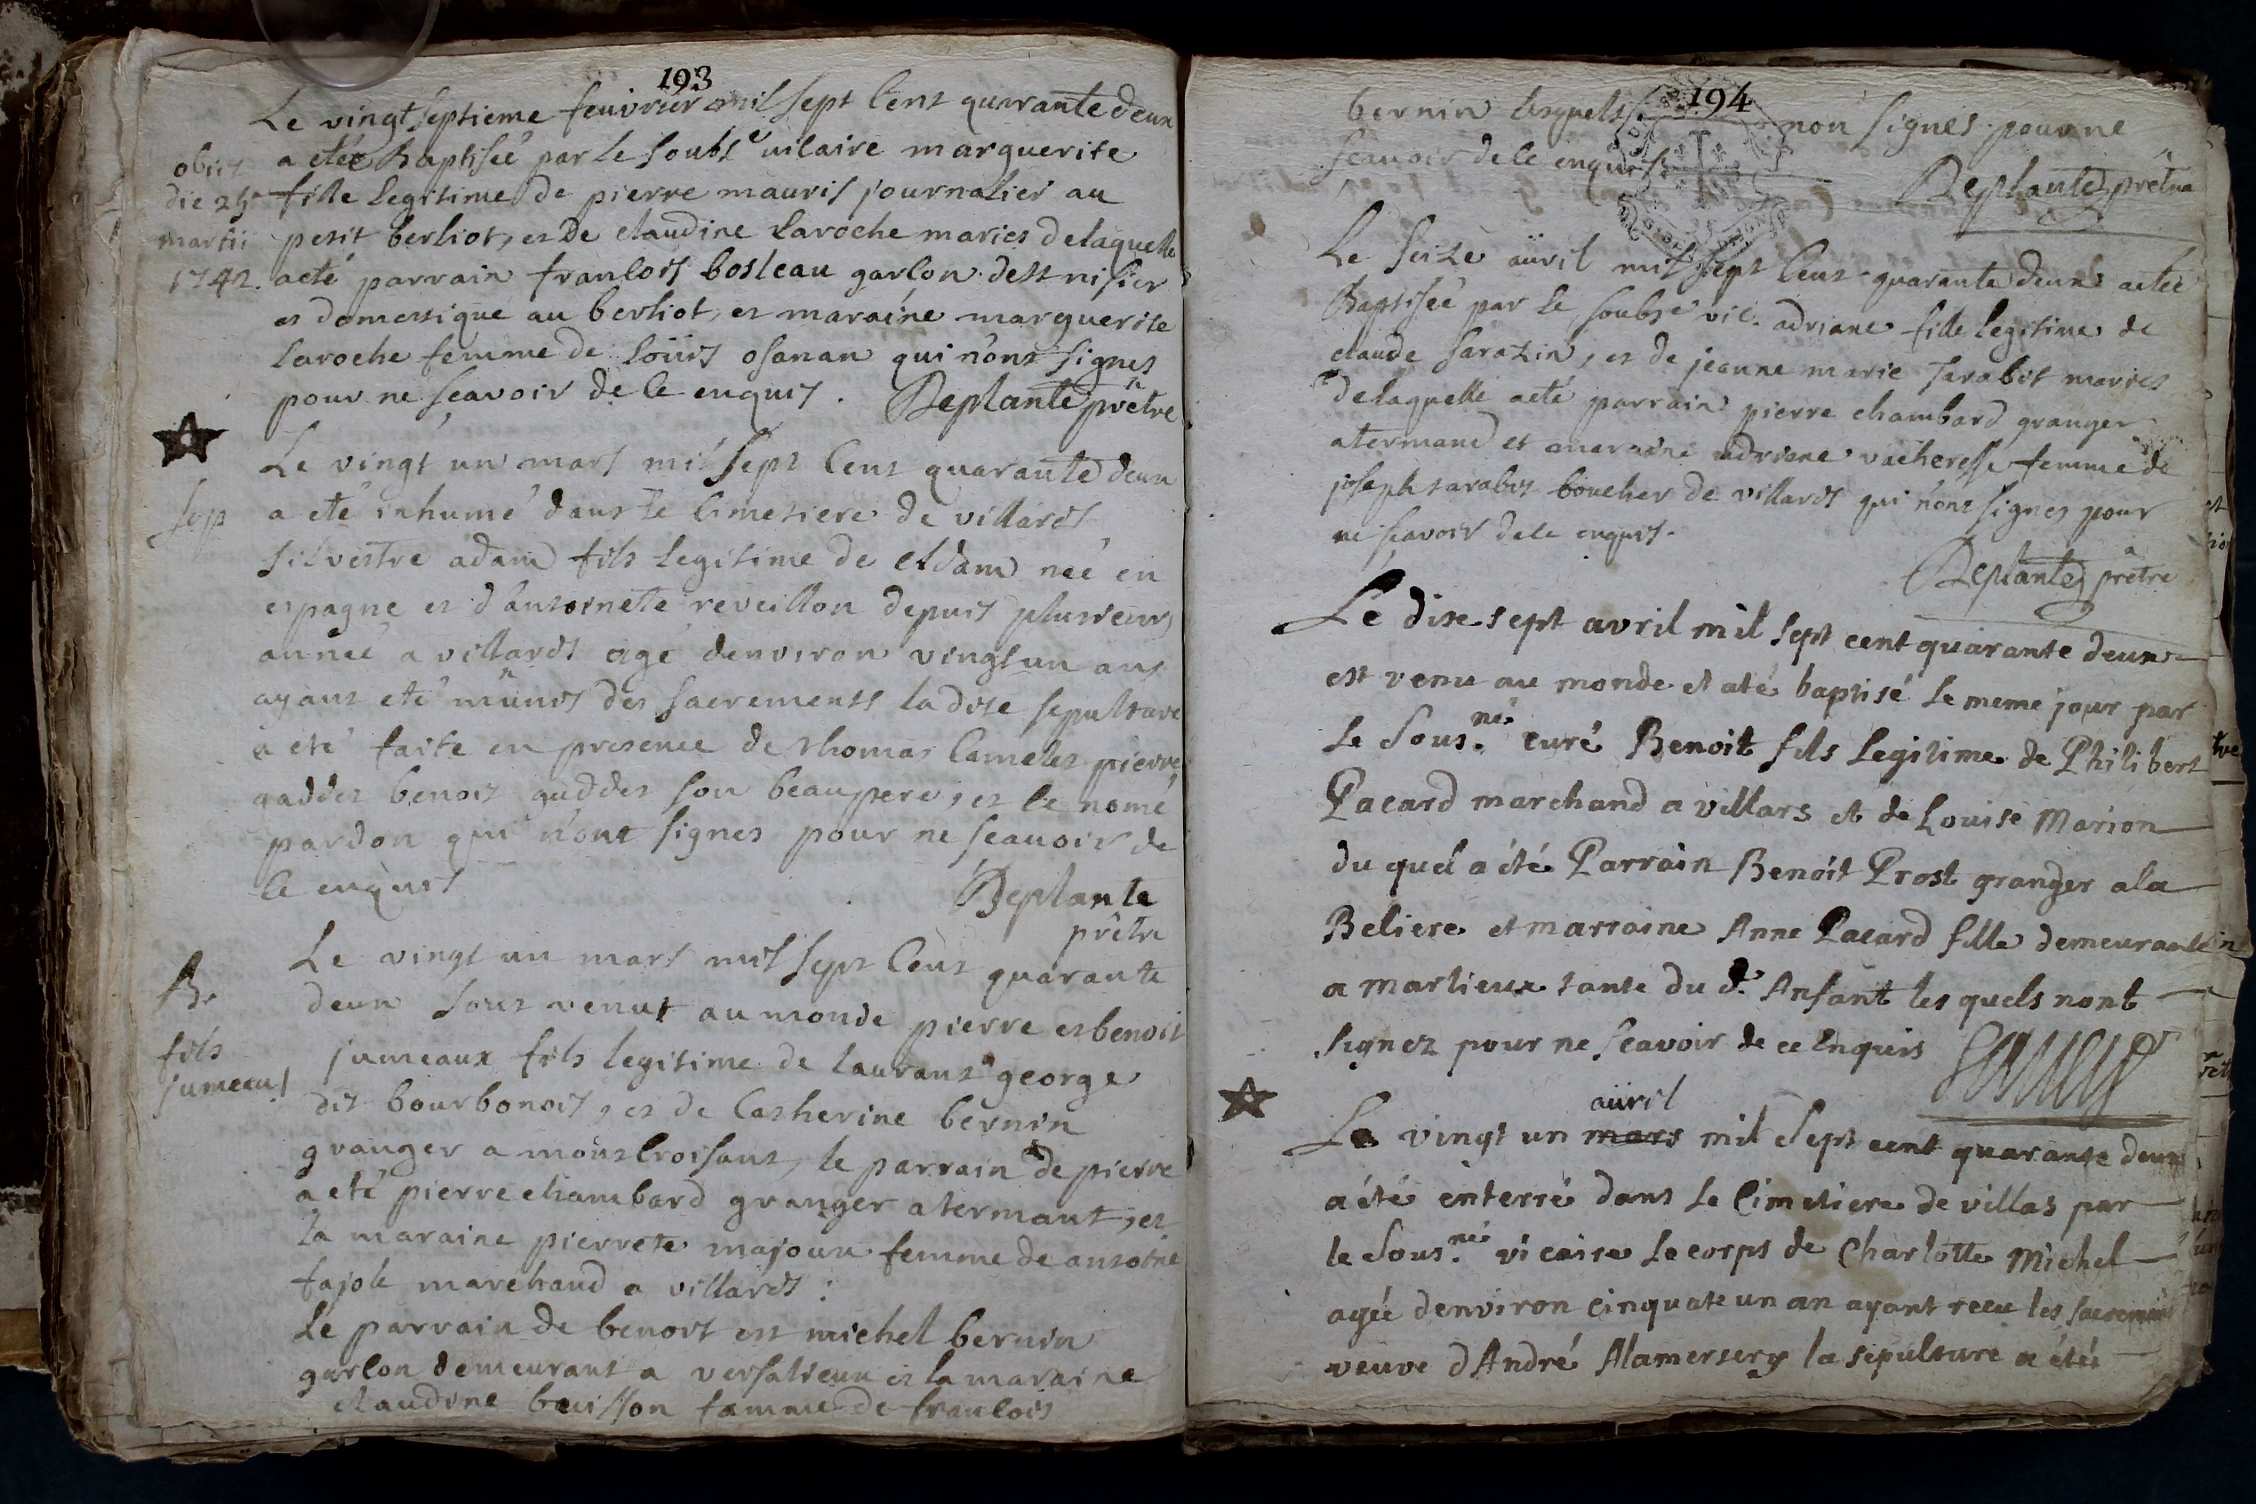 193
Le vingt septieme feuvrier mil sept Cent quarante deux
a etée Baptisée par le soubse vicaire marguerite
obiit
die 25e
martii
1742.
fille legitime de pierre mauris journalier au
petit berliot, et de claudine Laroche maries de laquelle
a eté parrain francois bosleau garcon de st nisier
et domestique au berliot, et maraine marguerite
Laroche femme de Loüis osanan qui n'ont signes
pour ne scavoir de ce enquis. Deplante prêtre
sep
Le vingt un mars mil sept Cent quarante deux
a eté inhumé dans le Cimetiere de villards
silvestre adam fils legitime de adam neé en
espagne et d'antoinete reveillon depuis plusieurs
anneé a villards agé denviron vingt un ans
ayant eté munis des sacrements la dite sepulture
a eté faite en presence de thomas Camelet pierre
gaddet benoit guddet son beaupere, et le nomé
pardon qui n'ont signes pour ne scavoir de
ce enquis
Deplante
prêtre
B.
fils
jumeaux
Le vingt un mars mil sept Cent quarante
deux sont venut au monde pierre et benoit
jumeaux fils legitime de laurant george
dit bourbonois, et de Catherine bernin
granger a montcroisant, le parrain de pierre
a eté pierre chambard granger a termant, et
la maraine pierrete majoux femme de antoine
fajole marchand a villards :
Le parrain de benoit est michel bernin
garcon demeurant a versalieux et la maraine
claudine buisson famme de francois
194
bernin lesquels non signes pour ne
scavoir de ce enquis
Deplante prêtre
Le seize aüril mil sept Cent quarante deux a etée
Baptisée par le soubsé vic. adriane fille legitime de
claude sarazin, et de jeanne marie Tarabit maries
de laquelle a eté parrain pierre chambard granger
a termand et maraine adriane vacheresse femme de
joseph tarabit boucher de villards qui n'ont signes pour
ne scavoir de ce enquis.
Deplante prêtre
Le dixe sept avril mil sept cent quarante deux
est venu au monde et a té baptisé le meme jour par
le Sous.né curé Benoit fils Legitime de Philibert
Pacard marchand a villars et de Louise Marion
du quel a été Parrain Benoit Prost granger a la
Beliere et marraine Anne Pacard fille demeurante
a marlieux tante du d. Anfant les quels nont
signez pour ne scavoir de ce Enquis
aüril
Le vingt un mars mil Sept cent quarante deux
a été enterré dans le Cimetiere de villas par
le Sous.né vicaire le corps de Charlotte Michel
agée denviron cinquate un an ayant recu les sacrements
veuve d'André Alamersery la sepulture a étés